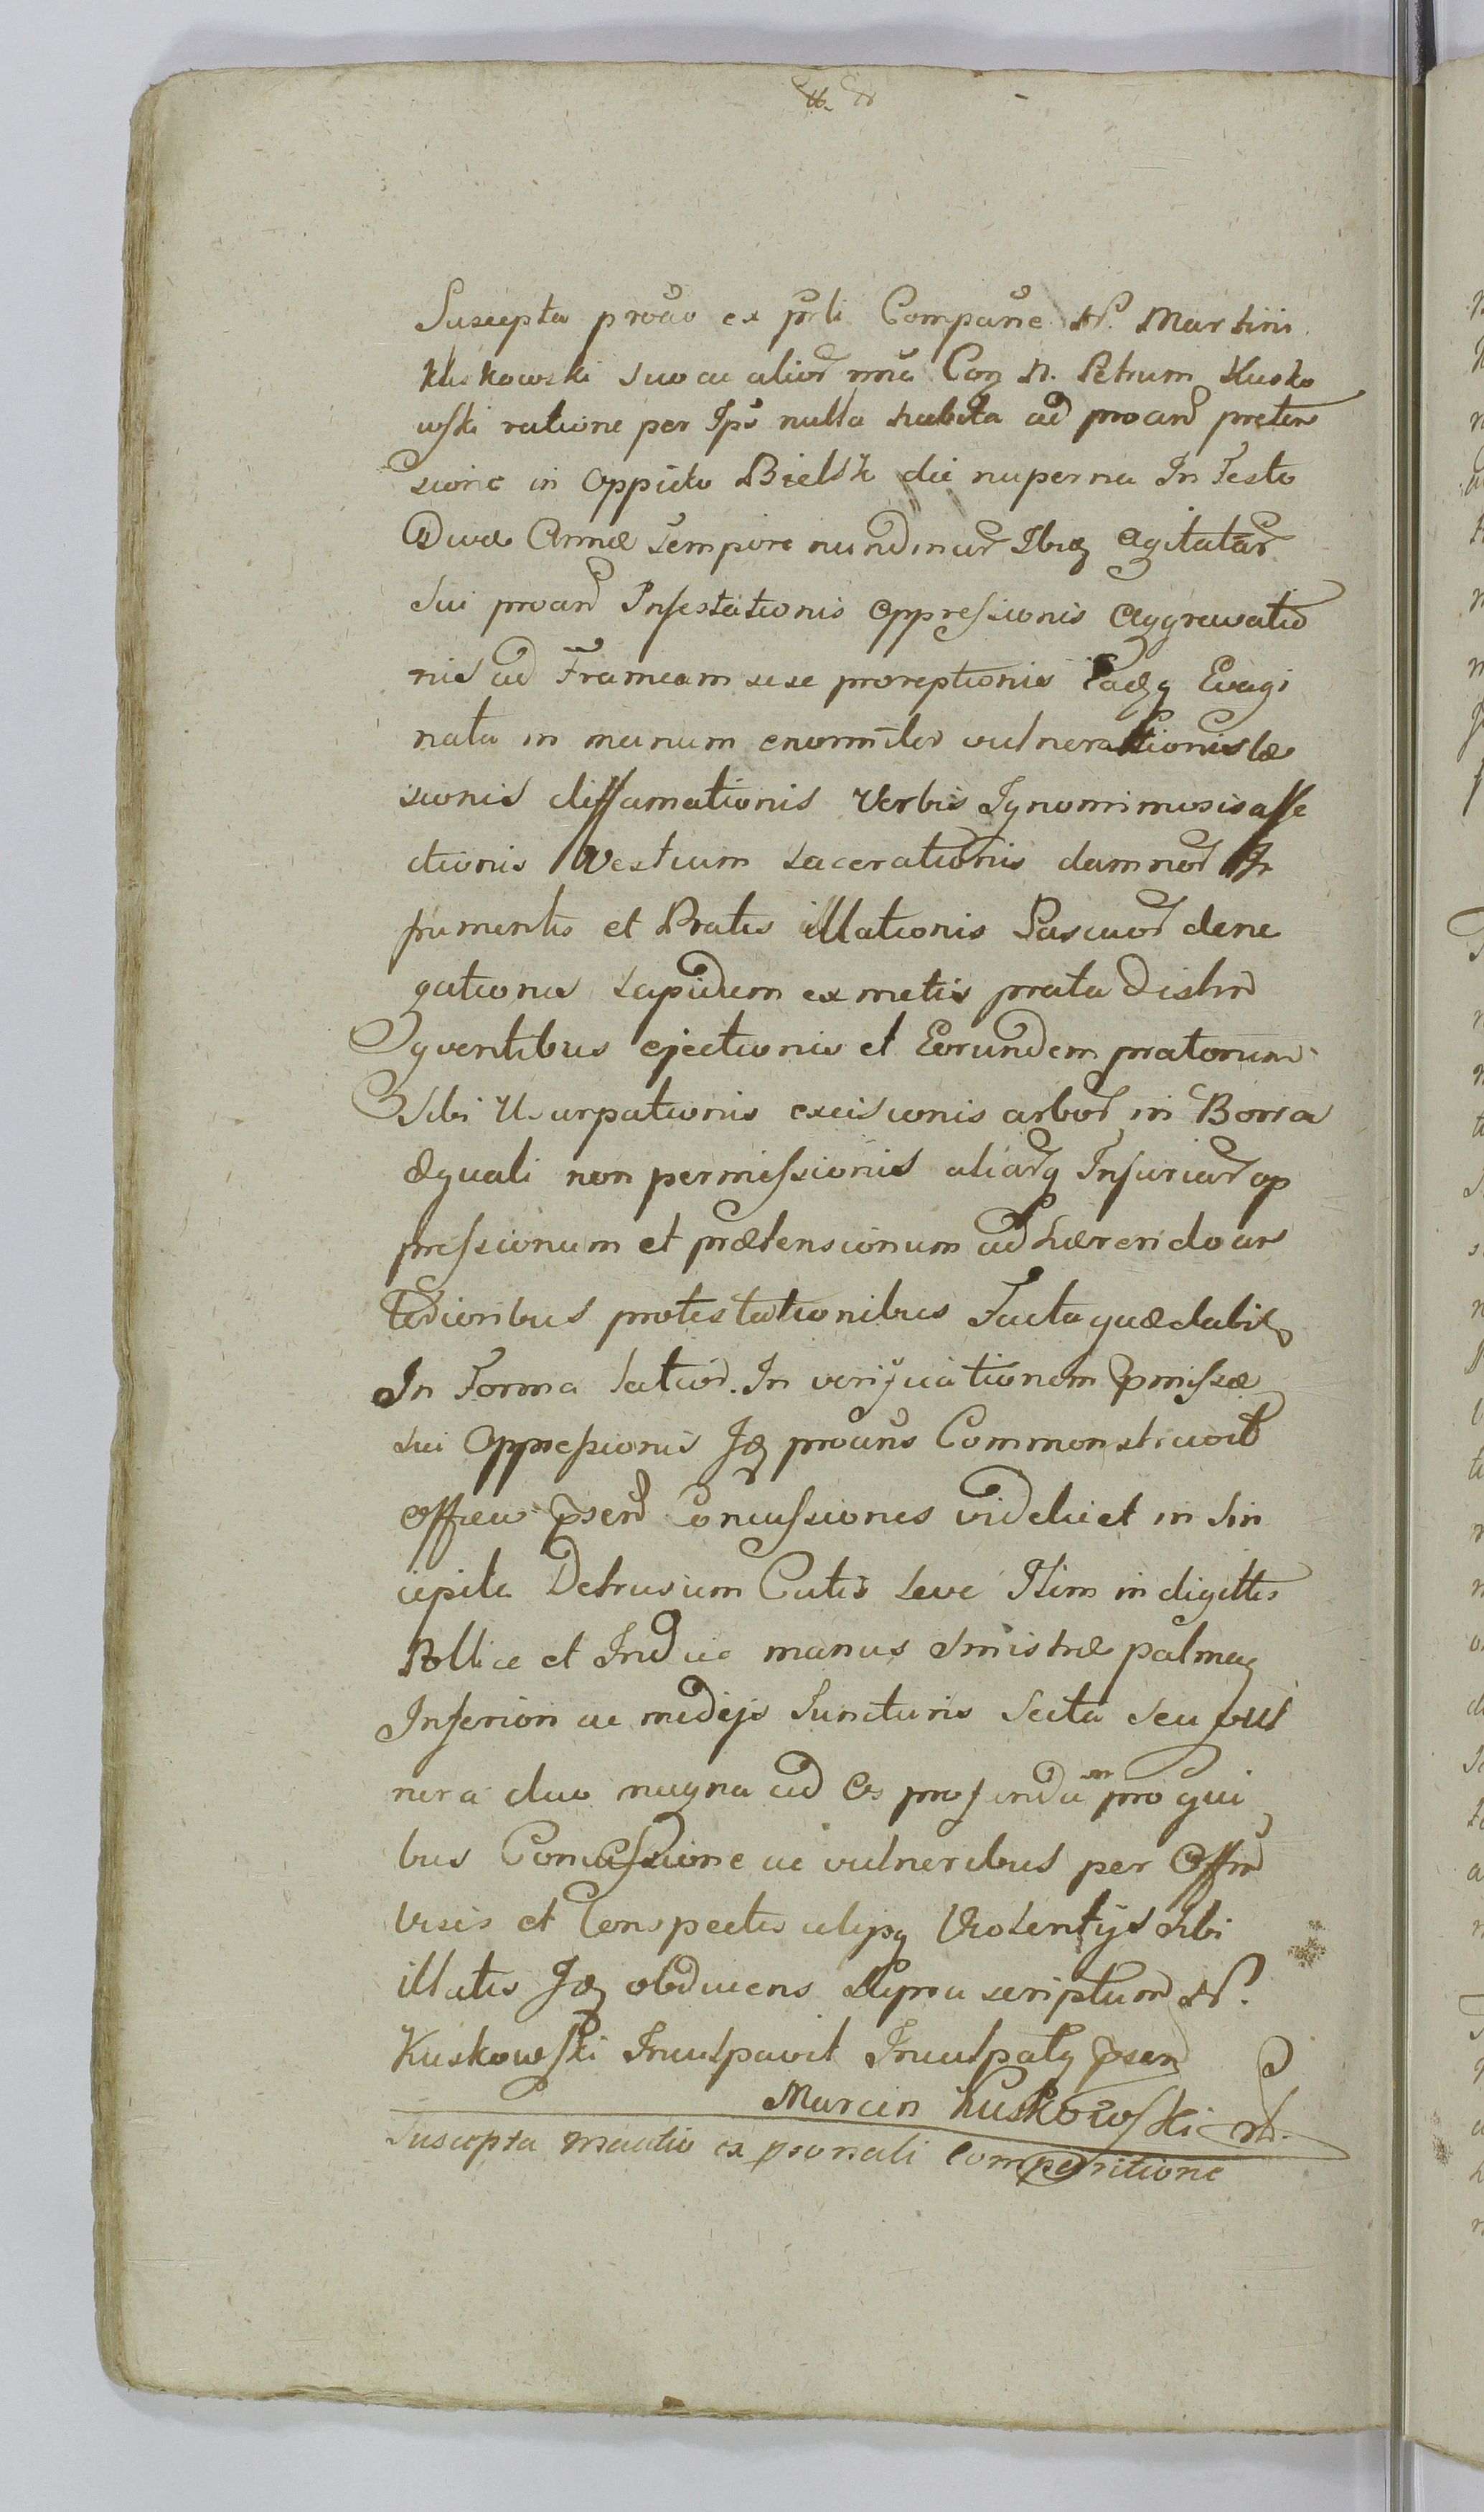 Suscepta proāo ex prli Compañe N. Martini
Kuskowski suo ac alior nñe Con N. Petrum Kusko
wski ratione per Ips nulla habita ad proand preten
sione in Oppido Bielsk die nuperna In Festo
Divæ Annæ tempore nundinar Ibiq Agitatar
Sui proand Infestationis oppressionis Aggravatio
nis ad Frameam sese proreptionis Eadq Evagi
nata in manum enormiter vulnerationis læ
sionis diffamationis Verbis Ignominiosis affe
ctionis Vestium Lacerationis damnor In
frumentis et Pratis illationis Pascuor dene
gationis Lapidum ex metis prata Distin
gventibus ejectionis et Eorundem pratorum
Sibi Usurpationis excisionis arbor in Borra
Æquali non permissionis aliarq Injuriar op
pressionum et prætensionum adhærendo an
terioribus protestationibus Facta quæ dabit
In Forma latior. In verificationem pmissæ
sui Oppressionis Idq proans Commonstravit
officio psen Concussiones videlicet in Sin
cipite Detrusum Cutis Leve Itim in digittis
Pollice et Indice manus sinistræ palmaq
Inferiori ac medijs Juncturis Secta Seu vul
nera duo magna ad Os profunda pro qui
bus Concussione ac vulneribus per Offin
visis et Conspectis alijsq Violentijs Sibi
illatis Idq obducens Supra scriptum N.
Kuskowski Inculpavit Inculpatq psen
Marcin Kuskowski
Suscepta manūtio ex psonali comparitione